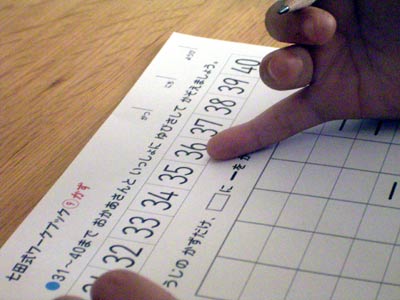 がつ　にち　ようび
七田式ワークブック⑨かず
●31～40まで おかあさんと いっしょに ゆびさして かぞえましょう。
32 33 34 35 36 37 38 39 40
うじの かずだけ、□に 一を か